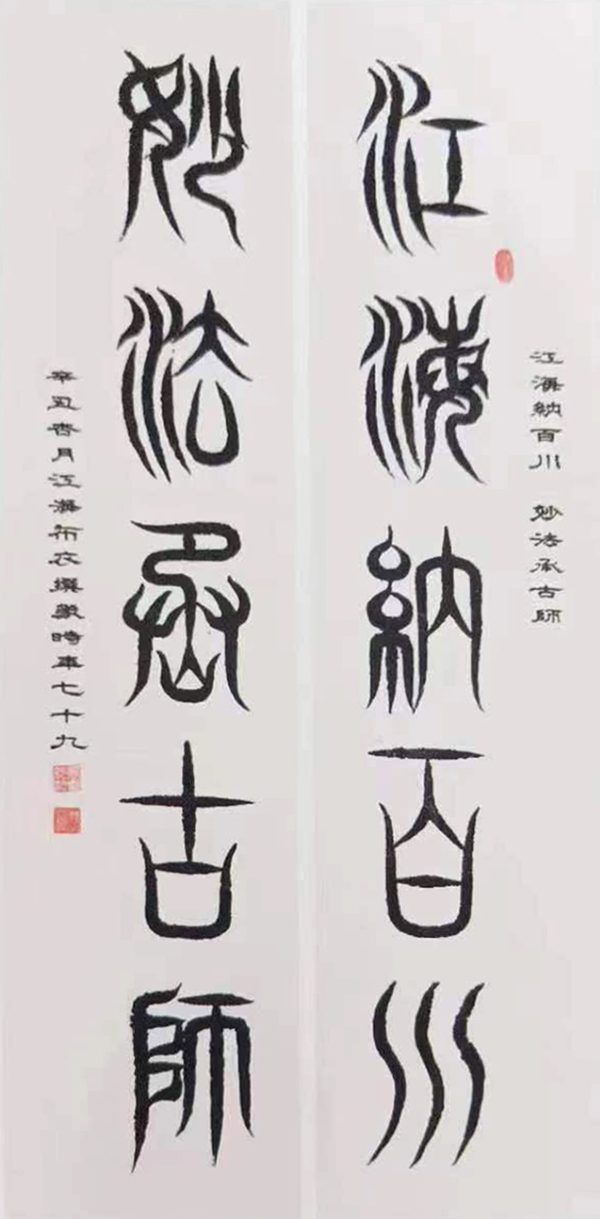 江海納百川 妙法承古師
江海納百川
妙法承古師
辛丑杏月江海布衣撰篆時年七十九